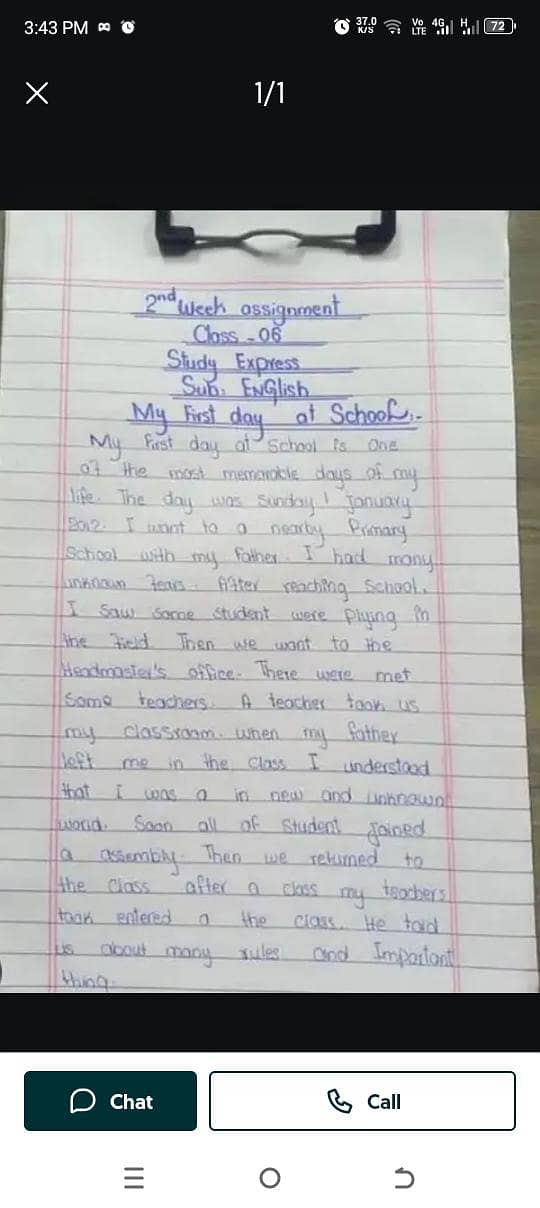 3:43 PM
37.0 K/S Vo LTE 4G H 72
1/1
2nd week assignment
Class - 06
Study Express
Sub: ENGlish
My First day at School:-
My First day at School is One
of the most memorable days of my
life. The day was Sunday 1 January
2012. I want to a nearby Primary
School with my father. I had many
unknown fears. After reaching School,
I saw some student were Plying in
the field Then we want to the
Headmaster's office. There were met
Some teachers. A teacher took us
my classroom. when my father
left me in the Class I understood
that I was a in new and unknown
world. Soon all of Student Joined
a assembly. Then we returned to
the Class after a class my teachers
took entered a the class. He told
us about many rules and Important
thing.
Chat
Call